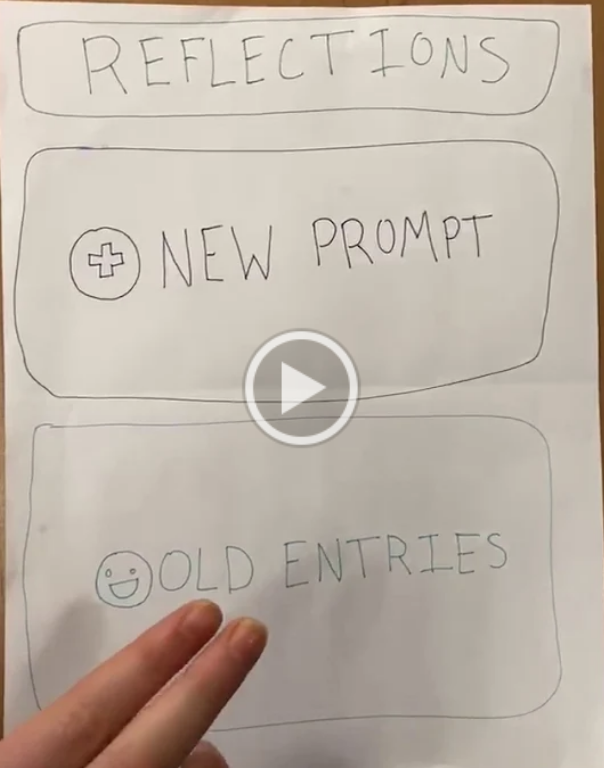 REFLECTIONS
NEW PROMPT
OLD ENTRIES